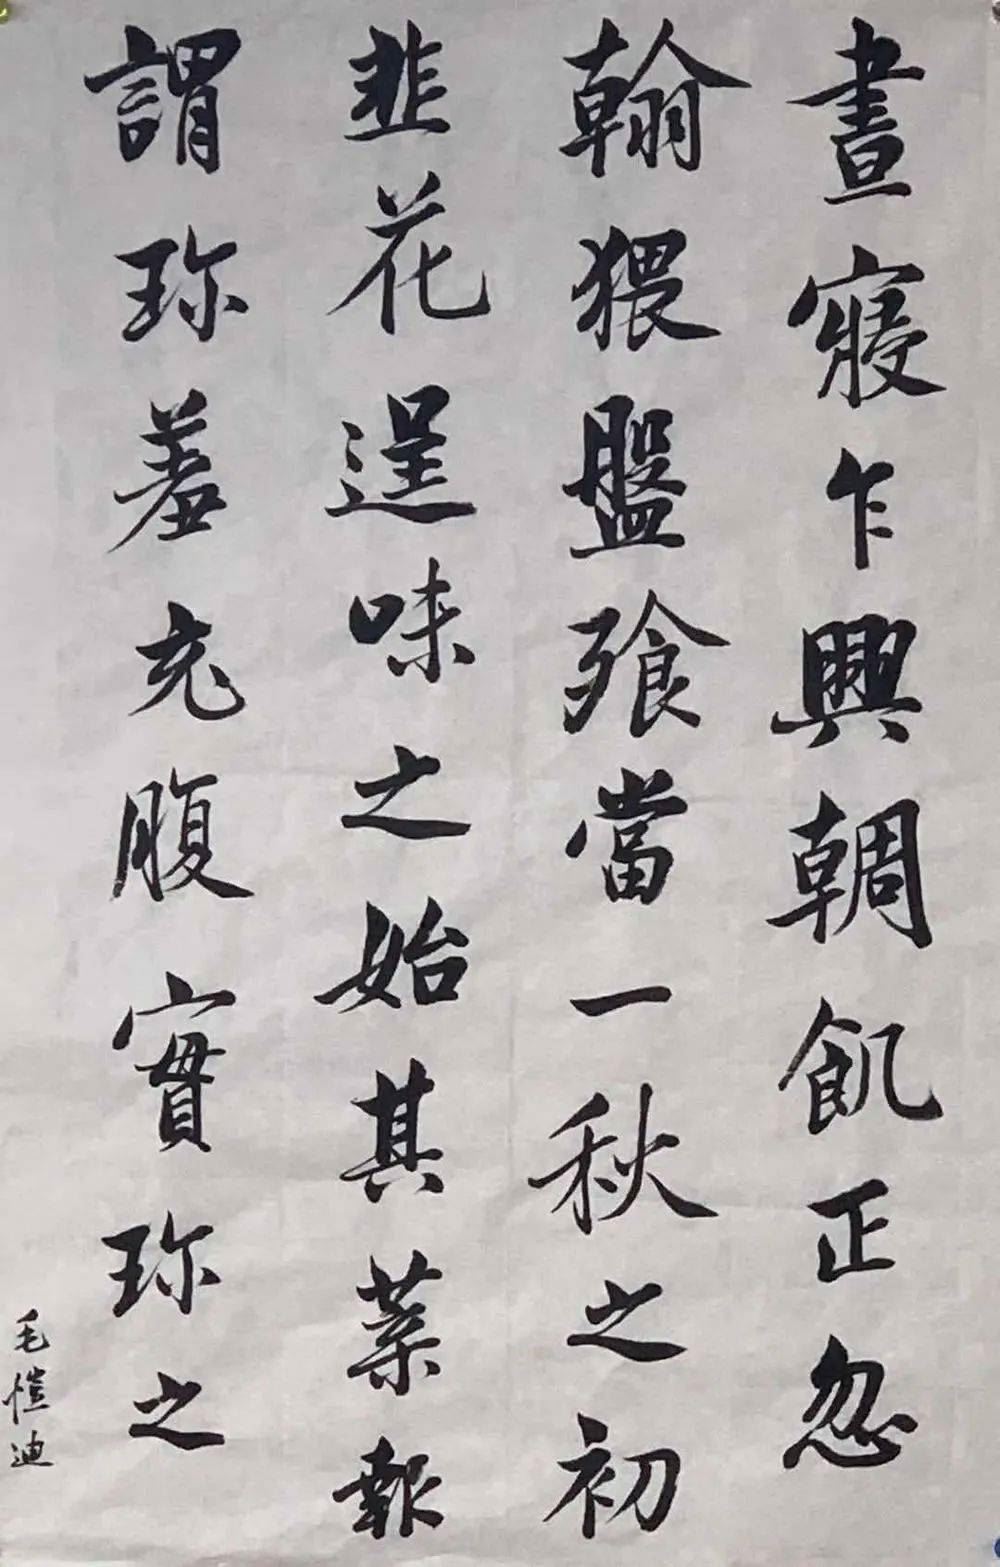 晝寢乍興朝飢正忽
翰猥盤飱當一秋之初
韭花逞味之始其菜報
謂珎羞充腹實珎之
毛愷迪